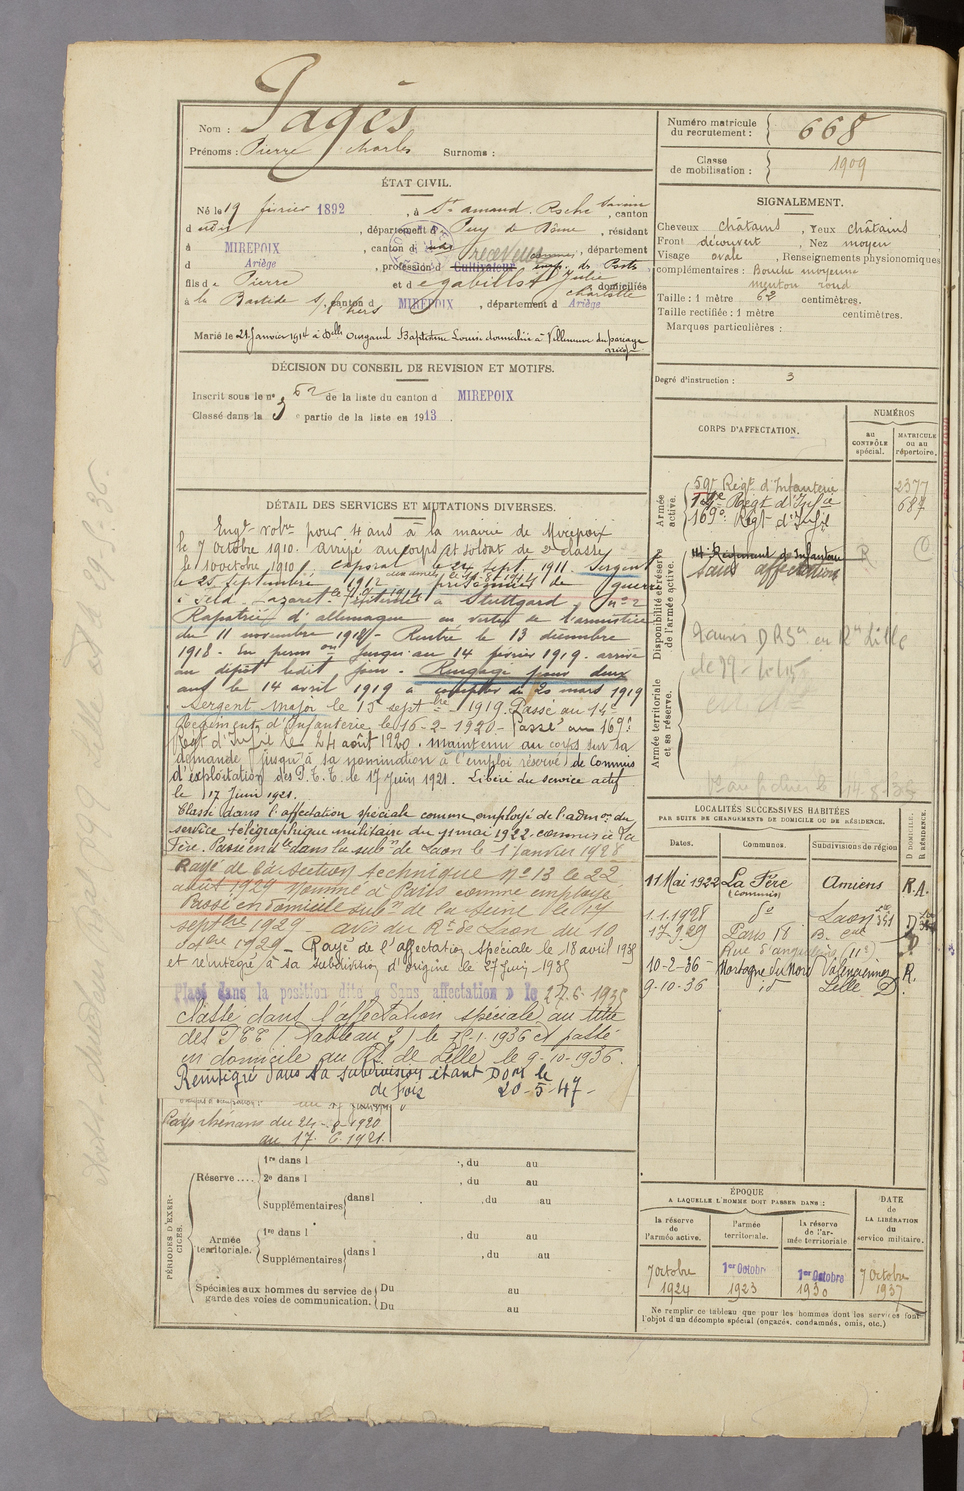 Nom : Pagès
Prénoms : Pierre Charles Surnoms :
Numéro matricule du recrutement : 668
Classe de mobilisation : 1909
ÉTAT CIVIL.
Né le 19 février 1892, à St Amand Roche Savine, canton
d udit, département d Puy de Dôme, résidant
à MIREPOIX, canton d udit, département
d Ariège, profession d Cultivateur Receveur des Postes
fils de Pierre et de Julie Charlotte domiciliés
à la Bastide s/ l'hers, canton d MIREPOIX, département d Ariège
Marié le 21 Janvier 1914 à Delle Baptistine Louise domiciliée à Villeneuve du pareage
SIGNALEMENT.
Cheveux châtains, Yeux châtains
Front découvert, Nez moyen
Visage ovale, Renseignements physionomiques
complémentaires : Bouche moyenne
menton rond
Taille : 1 mètre 62 centimètres.
Taille rectifiée : 1 mètre centimètres.
Marques particulières :
Degré d'instruction : 3
DÉCISION DU CONSEIL DE REVISION ET MOTIFS.
Inscrit sous le n° 52 de la liste du canton d MIREPOIX
Classé dans la 3 e partie de la liste en 1913.
CORPS D'AFFECTATION.
NUMÉROS
au CONTRÔLE spécial.
MATRICULE ou au répertoire.
Armée active.
59e Regt d'Infanterie 2377
14e Regt d'Infie 687
169e Regt d'Infie
Disponibilité et réserve de l'armée active.
14e Régiment d'Infanterie
Sans affectation
Armée territoriale et sa réserve.
14-8-36
DÉTAIL DES SERVICES ET MUTATIONS DIVERSES.
Engt volre pour 4 ans à la mairie de Mirepoix
le 7 octobre 1910. arrivé au corps et soldat de 2e classe
le 10 octobre 1910. Caporal le 24 sept. 1911. Sergent
le 25 septembre 1912 prisonnier de guerre
à Stuttgard, n° 2
Rapatrié d'allemagne en vertu de l'armistice
du 11 novembre 1918. Rentré le 13 décembre
1918. En perm on jusqu'au 14 février 1919. arrivé
au dépôt ledit jour. Rengagé pour deux
ans le 14 avril 1919 à compter du 20 mars 1919
Sergent Major le 15 septbre 1919. Passé au 14e
Régiment d'Infanterie le 16-2-1920. Passé au 169e
Regt d'Infie le 24 août 1920. maintenu au corps sur sa
demande (jusqu'à sa nomination à l'emploi réservé) de Commis
d'exploitation des P.T.T. le 17 Juin 1921. Libéré du service actif
le 17 Juin 1921.
Classé dans l'affectation spéciale comme employé de l'admon du
service télégraphique militaire du 11 mai 1922. commis à La
Fère. Passé en dle dans la subon de Laon le 1 Janvier 1928
Rayé de la section technique n° 13 le 22
août 1929 nommé à Paris comme employé
Passé en domicile subon de la Seine le 17
septbre 1929 avis du Rt de Laon du 10
1929 - Rayé de l'affectation spéciale le 18 avril 1935
et réintégré à sa subdivision d'origine le 27 Juin 1935
Placé dans la position dite « Sans affectation » le 27.6.1935
Classé dans l'affectation spéciale au titre
des PTT (Tableau 2) le 1936 et passé
en domicile au Rt de Lille le 9-10-1936.
Réintégré dans sa subdivision étant Dom le
de Foix 20-5-47-
Pays rhénans du 24-8-1920
au 17.6.1921.
LOCALITÉS SUCCESSIVES HABITÉES
PAR SUITE DE CHANGEMENTS DE DOMICILE OU DE RÉSIDENCE.
Dates. Communes. Subdivisions de région D DOMICILE. R RÉSIDENCE.
11 Mai 1922 La Fère (commis) Amiens R.A.
1.1.1928 do Laon D
17.9.29 Paris 18 B. cal D
10-2-36 - Mortagne du Nord Valenciennes R.
9-10-36 id Lille D
PÉRIODES D'EXERCICES.
Réserve ....
1re dans l , du au
2e dans l , du au
Supplémentaires dans l , du au
Armée territoriale.
1re dans l , du au
Supplémentaires dans l , du au
Spéciales aux hommes du service de garde des voies de communication.
Du au
Du au
ÉPOQUE
A LAQUELLE L'HOMME DOIT PASSER DANS :
la réserve de l'armée active.
l'armée territoriale.
la réserve de l'armée territoriale
DATE de LA LIBÉRATION du service militaire.
7 octobre 1924
1er Octobre 1923
1er Octobre 1930
7 Octobre 1937
Ne remplir ce tableau que pour les hommes dont les services font
l'objet d'un décompte spécial (engagés, condamnés, omis, etc.)